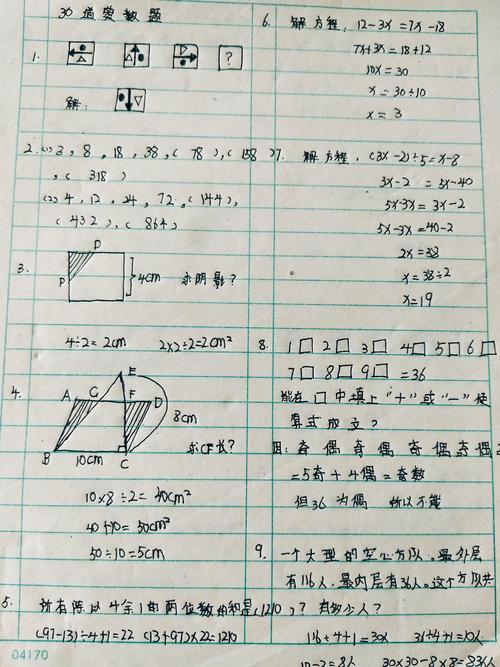 30道奥数题
1.
?
解:
2.(1) 3, 8, 18, 38, ( 78 ), ( 158 )
, ( 318 )
(2) 4, 12, 24, 72, ( 144 ),
( 432 ), ( 864 )
3.
D
P
4cm 求阴影?
4÷2=2cm 2×2÷2=2cm²
4.
E
A G F D
8cm
B 10cm C
求CF长?
10×8÷2=40cm²
40+10=50cm²
50÷10=5cm
5. 所有除以4余1的两位数的和是(1210)?
(97-13)÷4+1=22 (13+97)×22=1210
6. 解方程, 12-3x=7x-18
7x+3x=18+12
10x=30
x=30÷10
x=3
7. 解方程, (3x-2)÷5=x-8
3x-2=5x-40
5x-3x=3x-2
5x-3x=40-2
2x=38
x=38÷2
x=19
8. 1□ 2□ 3□ 4□ 5□ 6□
7□ 8□ 9□ =36
能在□中填上"+"或"-"使
算式成立?
因: 奇 偶 奇 偶 奇 偶 奇 偶
=5奇+4偶=奇数
但36为偶 所以不能
9. 一个大型的空心方队。最外层
有116人,最内层有36人。这个方队共
有多少人?
116÷4+1=30人 36÷4+1=10人
10-2=8人 30×30-8×8=836人
04170